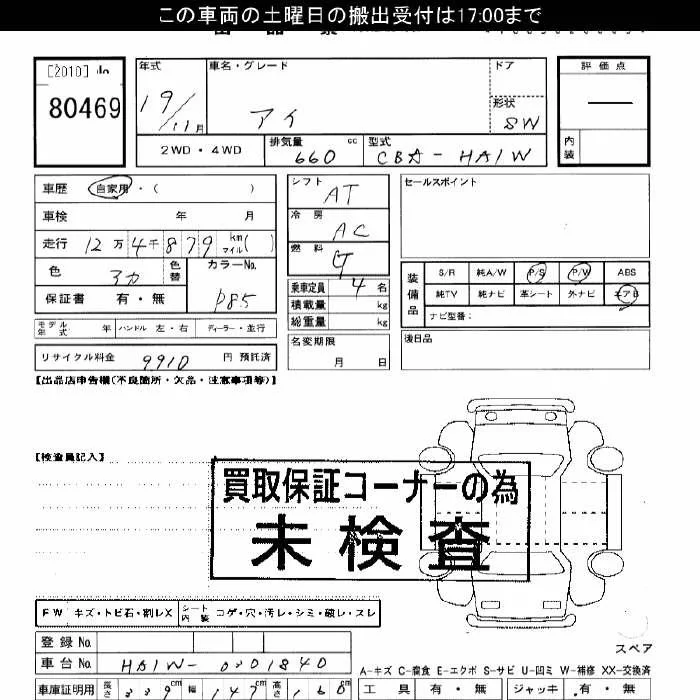 この車両の土曜日の搬出受付は17:00まで
[2010]
80469
年式
19/11月
車名・グレード
アイ
ドア
形状
SW
評価点
内装
2WD・4WD
排気量
660 cc
型式
CBA-HA1W
車歴 自家用・( )
車検 年 月
走行 12万4千879 km マイル( )
色 アカ
色替
カラーNo.
P85
保証書 有・無
モデル年式 年 ハンドル 左・右 ディーラー・並行
リサイクル料金 9910 円 預託済
シフト
AT
冷房
AC
燃料
乗車定員 4 名
積載量 kg
総重量 kg
名変期限
月 日
セールスポイント
装備品
S/R 純A/W P/S P/W ABS
純TV 純ナビ 革シート 外ナビ エアB
ナビ型番:
後日品
【出品店申告欄(不良箇所・欠品・注意事項等)】
【検査員記入】
買取保証コーナーの為
未検査
FW キズ・トビ石・割レX
シート内装 コゲ・穴・汚レ・シミ・破レ・スレ
登録No.
車台No. HA1W-0301840
スペア
A-キズ C-腐食 E-エクボ S-サビ U-凹ミ W-補修 XX-交換済
車庫証明用 長さ 339cm 幅 147cm 高さ 160cm
工具 有・無 ジャッキ 有・無